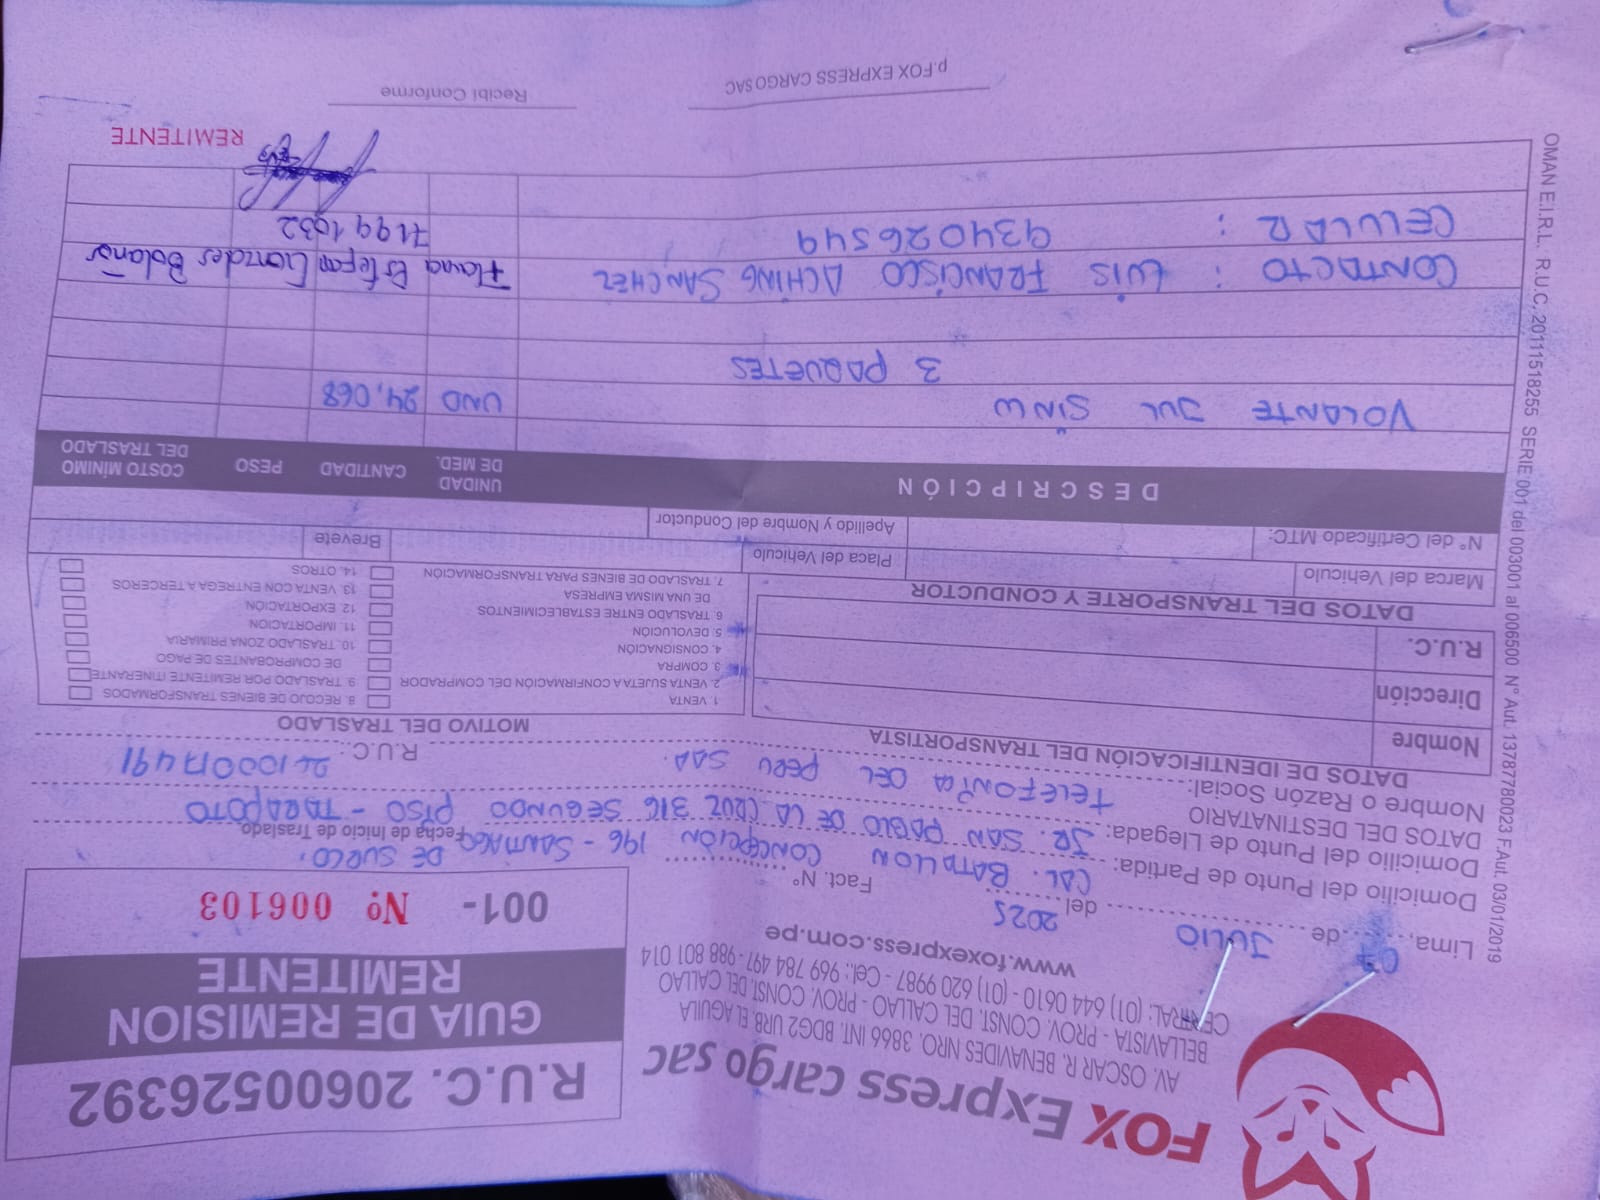 FOX Express cargo sac
AV. OSCAR R. BENAVIDES NRO. 3866 INT. BDG2 URB. EL AGUILA
BELLAVISTA - PROV. CONST. DEL CALLAO - PROV. CONST. DEL CALLAO
CENTRAL: (01) 644 0610 - (01) 620 9987 - Cel.: 969 784 497 - 988 801 014
www.foxexpress.com.pe
R.U.C. 20600526392
GUIA DE REMISION
REMITENTE
001- Nº 006103
Lima, 07 de JULIO del 2025 Fact. N°
Domicilio del Punto de Partida: CAL. BATALLON CONCEPCIÓN 196 - SANTIAGO DE SURCO.
Fecha de Inicio de Traslado
Domicilio del Punto de Llegada: JR. SAN PABLO DE LA CRUZ 316 SEGUNDO PISO - TARAPOTO
DATOS DEL DESTINATARIO
Nombre o Razón Social: TELEFONÍA DEL PERU SAA. R.U.C.:
DATOS DE IDENTIFICACIÓN DEL TRANSPORTISTA
Nombre
Dirección
R.U.C.
MOTIVO DEL TRASLADO
1. VENTA
2. VENTA SUJETA A CONFIRMACIÓN DEL COMPRADOR
3. COMPRA
4. CONSIGNACIÓN
5. DEVOLUCIÓN
6. TRASLADO ENTRE ESTABLECIMIENTOS
DE UNA MISMA EMPRESA
7. TRASLADO DE BIENES PARA TRANSFORMACIÓN
8. RECOJO DE BIENES TRANSFORMADOS
9. TRASLADO POR REMITENTE ITINERANTE
DE COMPROBANTES DE PAGO
10. TRASLADO ZONA PRIMARIA
11. IMPORTACION
12. EXPORTACIÓN
13. VENTA CON ENTREGA A TERCEROS
14. OTROS
DATOS DEL TRANSPORTE Y CONDUCTOR
Marca del Vehiculo Placa del Vehiculo Brevete
N° del Certificado MTC: Apellido y Nombre del Conductor
DESCRIPCIÓN UNIDAD DE MED. CANTIDAD PESO COSTO MÍNIMO DEL TRASLADO
VOLANTE JUL SINW UND 24,068
3 PAQUETES
CONTACTO : LUIS FRANCISCO ACHING SANCHEZ
CELULAR : 934026549
71991032
REMITENTE
p.FOX EXPRESS CARGO SAC
Recibi Conforme
OMAN E.I.R.L. R.U.C. 20111518255 SERIE 001 del 003001 al 006500 N° Aut. 13787780023 F.Aut. 03/01/2019